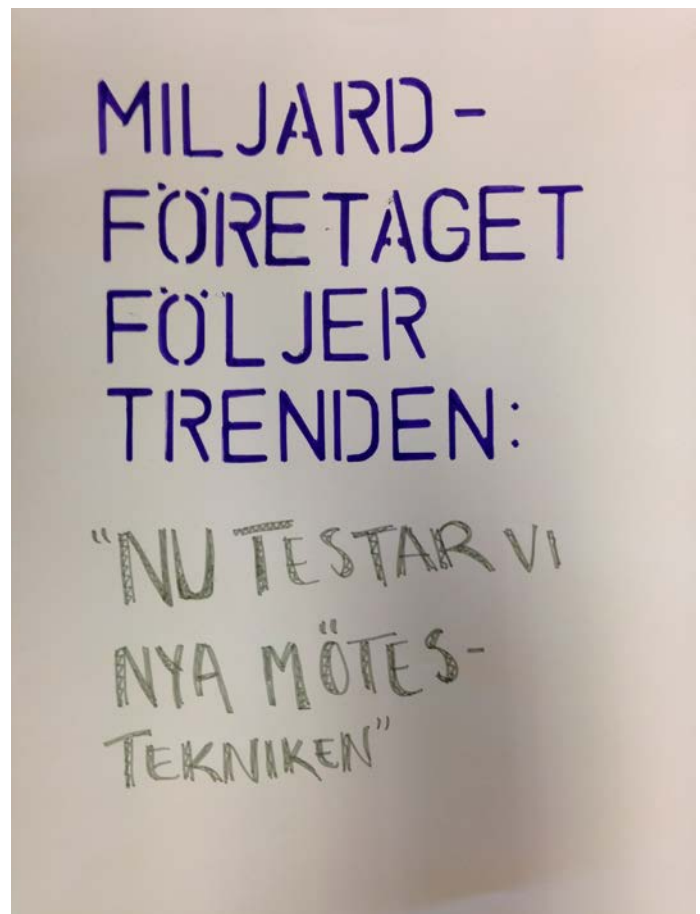 MILJARD-
FÖRETAGET
FÖLJER
TRENDEN:
"NU TESTAR VI
NYA MÖTES-
TEKNIKEN"